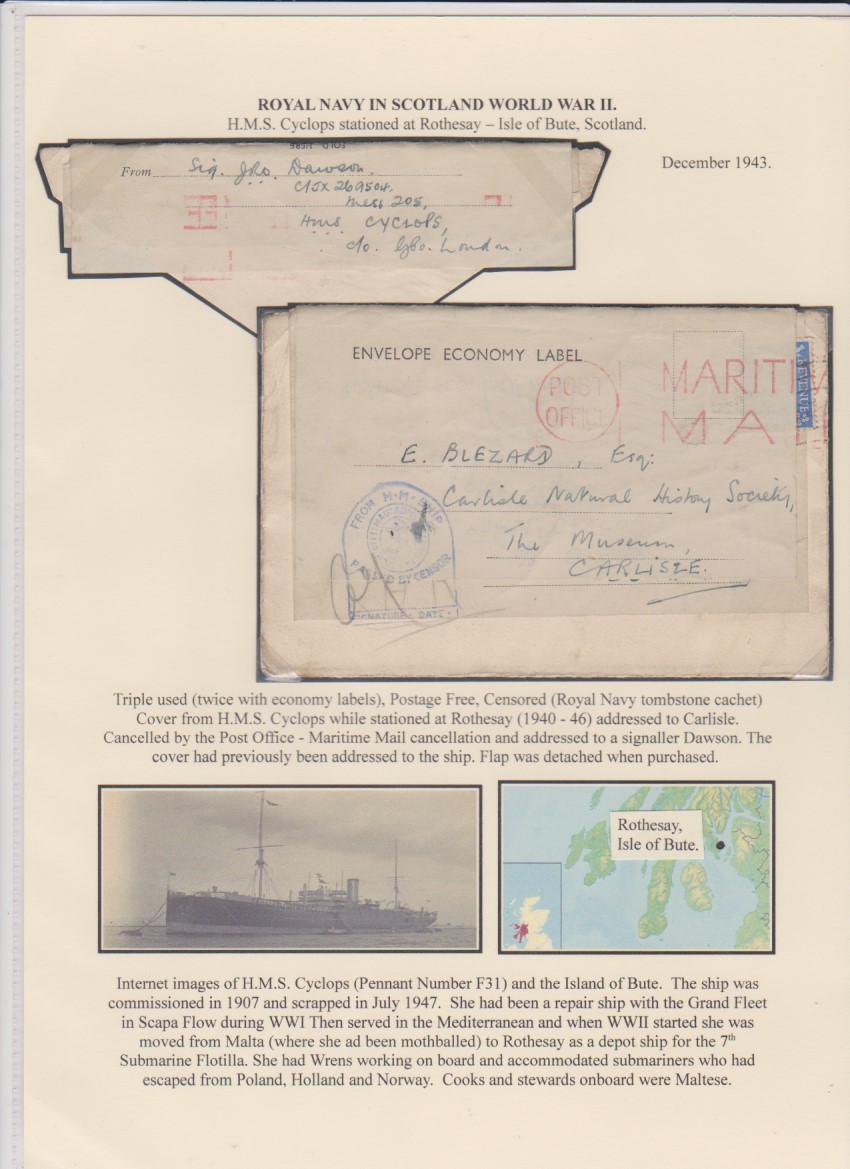 ROYAL NAVY IN SCOTLAND WORLD WAR II.
H.M.S. Cyclops stationed at Rothesay – Isle of Bute, Scotland.
December 1943.
FOLD HERE
From Sig. Jno. Dawson.
C/JX 269504.
Mess 205,
HMS CYCLOPS,
c/o. GPO. London.
ENVELOPE ECONOMY LABEL
POST OFFICE
MARITIM
MAI
REVENUE
E. BLEZARD, Esq:
Carlisle Natural History Society,
The Museum,
CARLISLE.
FROM H.M. SHIP
PASSED BY CENSOR
SIGNATURE - DATE -
Triple used (twice with economy labels), Postage Free, Censored (Royal Navy tombstone cachet)
Cover from H.M.S. Cyclops while stationed at Rothesay (1940 - 46) addressed to Carlisle.
Cancelled by the Post Office - Maritime Mail cancellation and addressed to a signaller Dawson. The
cover had previously been addressed to the ship. Flap was detached when purchased.
Rothesay,
Isle of Bute.
Internet images of H.M.S. Cyclops (Pennant Number F31) and the Island of Bute. The ship was
commissioned in 1907 and scrapped in July 1947. She had been a repair ship with the Grand Fleet
in Scapa Flow during WWI Then served in the Mediterranean and when WWII started she was
moved from Malta (where she ad been mothballed) to Rothesay as a depot ship for the 7th
Submarine Flotilla. She had Wrens working on board and accommodated submariners who had
escaped from Poland, Holland and Norway. Cooks and stewards onboard were Maltese.